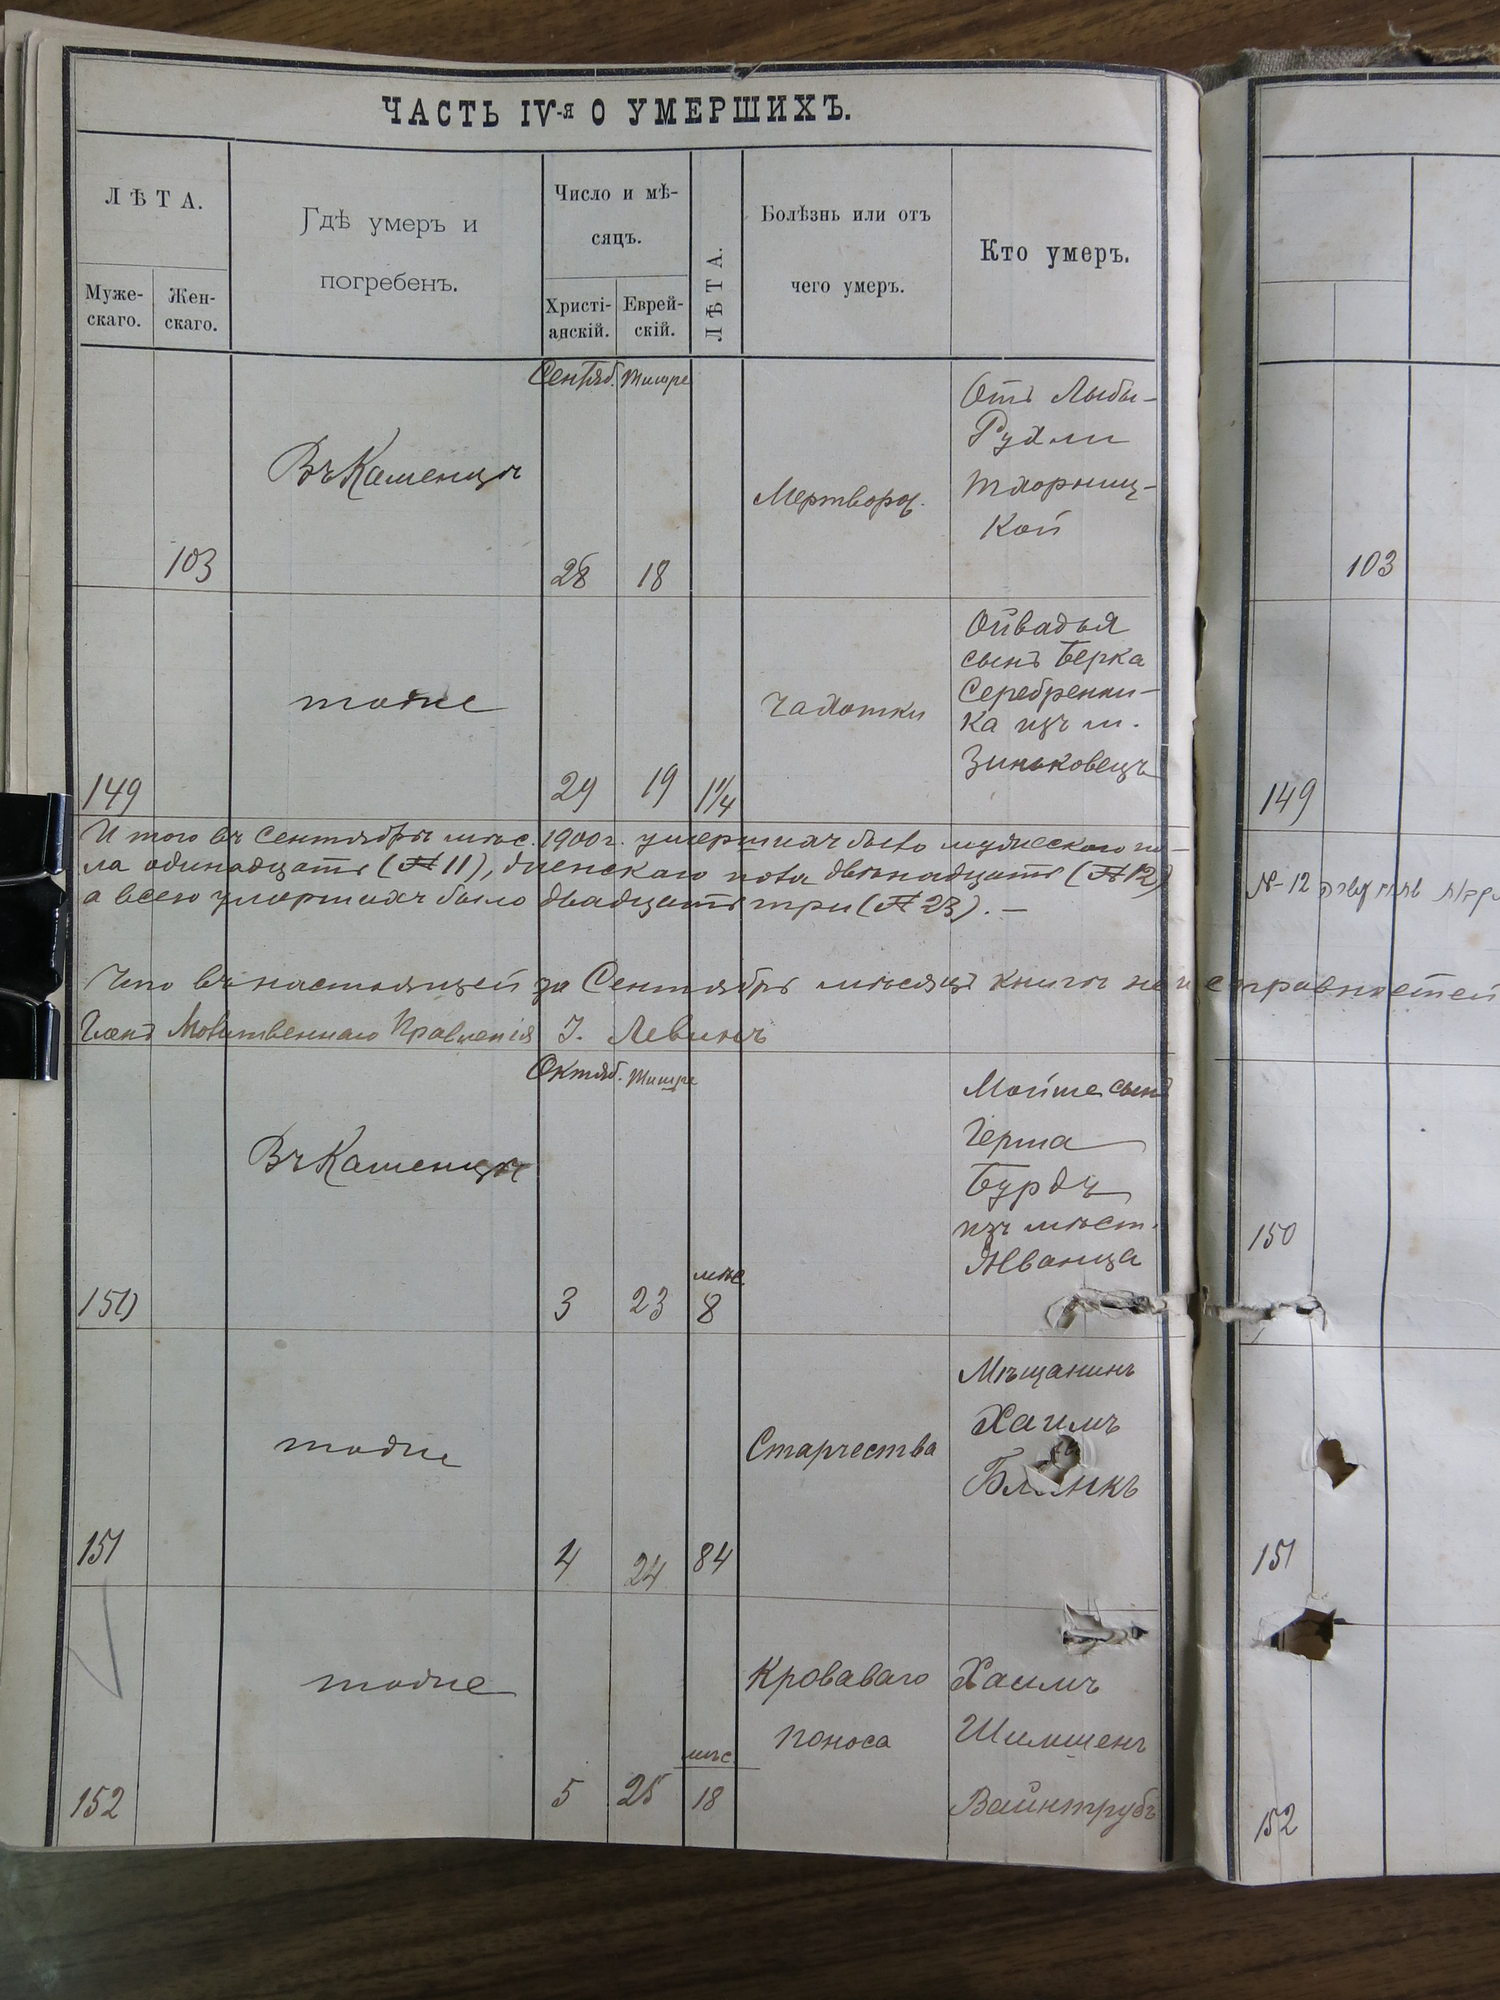 ЧАСТЬ IV-я О УМЕРШИХЪ.
ЛѢТА.
Муже-
скаго.
Жен-
скаго.
Гдѣ умеръ и
погребенъ.
Число и мѣ-
сяцъ.
Христі-
анскій.
Еврей-
скій.
ЛѢТА.
Болѣзнь или отъ
чего умеръ.
Кто умеръ.
Сентяб. Тишре
103
Въ Каменцѣ
28
18
Мертворо.
Отъ Лыбы-
Рухли
Тхорниц-
кой
149
тоже
29
19
1 1/4
Чахотки
Ойвадья
сынъ Берка
Серебренни-
ка изъ м.
Зиньковецъ
Итого въ сентябрѣ мѣс. 1900 г. умершихъ было мужескаго по-
ла одинадцать (№ 11), женскаго пола двѣнадцать (№ 12)
а всего умершихъ было двадцать три (№ 23). —
Что въ настоящей за Сентябрь мѣсяцъ книгѣ неисправностей
Членъ Молитвеннаго Правленія І. Левинъ
Октяб. Тишре
150
Въ Каменцѣ
3
23
мѣс.
8
Мойше сынъ
Герша
Бурдъ
изъ мѣст.
Жванца
151
тоже
4
24
84
Старчества
Мѣщанинъ
Хаимъ
Бланкъ
152
тоже
5
25
мѣс.
18
Кроваваго
поноса
Хаимъ
Шимшенъ
Вайнтрубъ
103
149
№-12
150
151
152